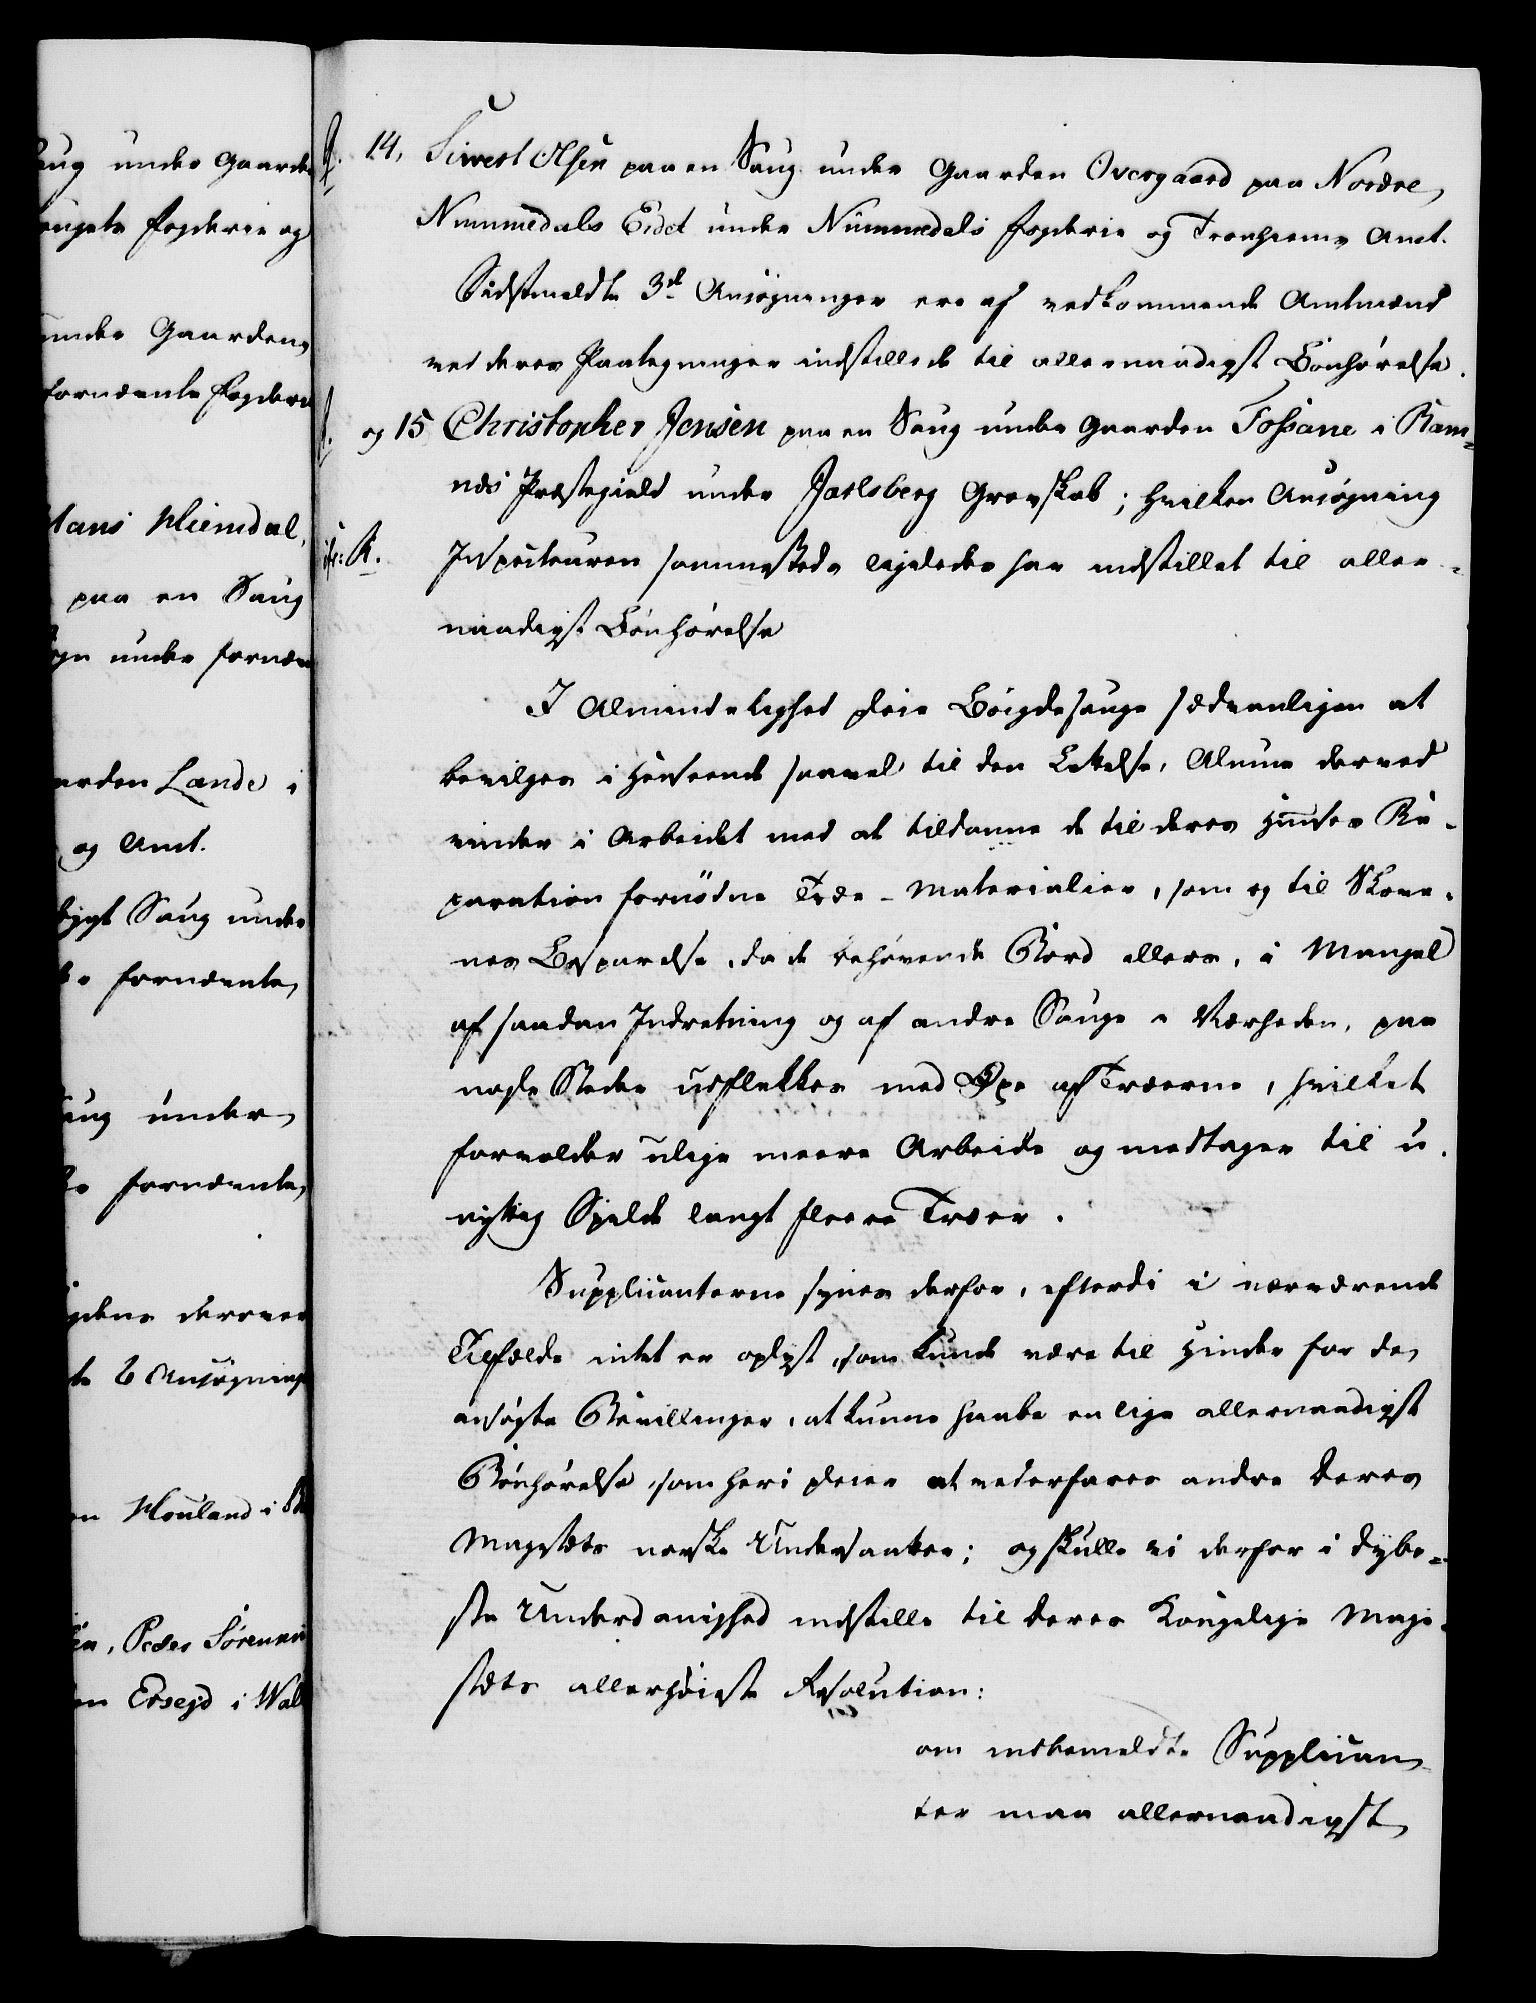 aug under Gaarde
ougets Fogderie og
under Gaarden
fornævnte Fogderi
Hans Hiemdal,
paa en Saug
ogn under fornæv
arden Lande i
og Amt.
bygt Saug under
fornævnte
aug under
fornævnte
gdens derover
te 6 Ansøgning
en Houland i
en, Peder Sørensen
en Ersejd i Wal
14. Sivert Olsen paa en Saug under Gaarden Overgaard paa Nordre
Nummedals Eidet under Nummedals Fogderie og Tronhiems Amt.
Sidstmeldte 3de Ansøgninger ere af vedkommende Amtmænd
ved deres Paategninger indstillede til allernaadigst Bønhørelse.
og 15 Christopher Jensen paa en Saug under Gaarden Fossane i Ram=
næs Præstegield under Jarlsberg Grevskab; hvilken Ansøgning
Inspecteuren sammesteds ligeledes har indstillet til aller=
naadigst Bønhørelse
I Almindelighed pleie Bøigdesauge sædvanligen at
bevilges i Henseende saavel til den Lettelse, Almuen derved
vinder i Arbeidet med at tildanne de til deres Huuses Re-
paration fornödne Træe-Materialier, som og til Skove-
nes Besparelse, da de behøvende Bord ellers, i Mangel
af saadan Indretning og af andre Sauge i Nærheden, paa
nogle Steder udflækkes med Øxe af Træerne, hvilket
forvolder ulige meere Arbeide og medtager til u-
nyttig Spilde langt fleere Træer.
Supplicanterne synes derfor, efterdi i nærværende
Tilfælde intet er oplyst, som kunde være til Hinder for de
ansøgte Bevillinger, at kunne haabe en lige allernaadigst
Bønhørelse, som heri pleier at vederfares andre Deres
Majestæts norske Undersaatter; og skulle vi derfor i dybe=
ste Underdanighed indstille til Deres Kongelige Maje-
stæts allerhöieste Resolution:
om indbemeldte Supplican-
ter maa allernaadigst